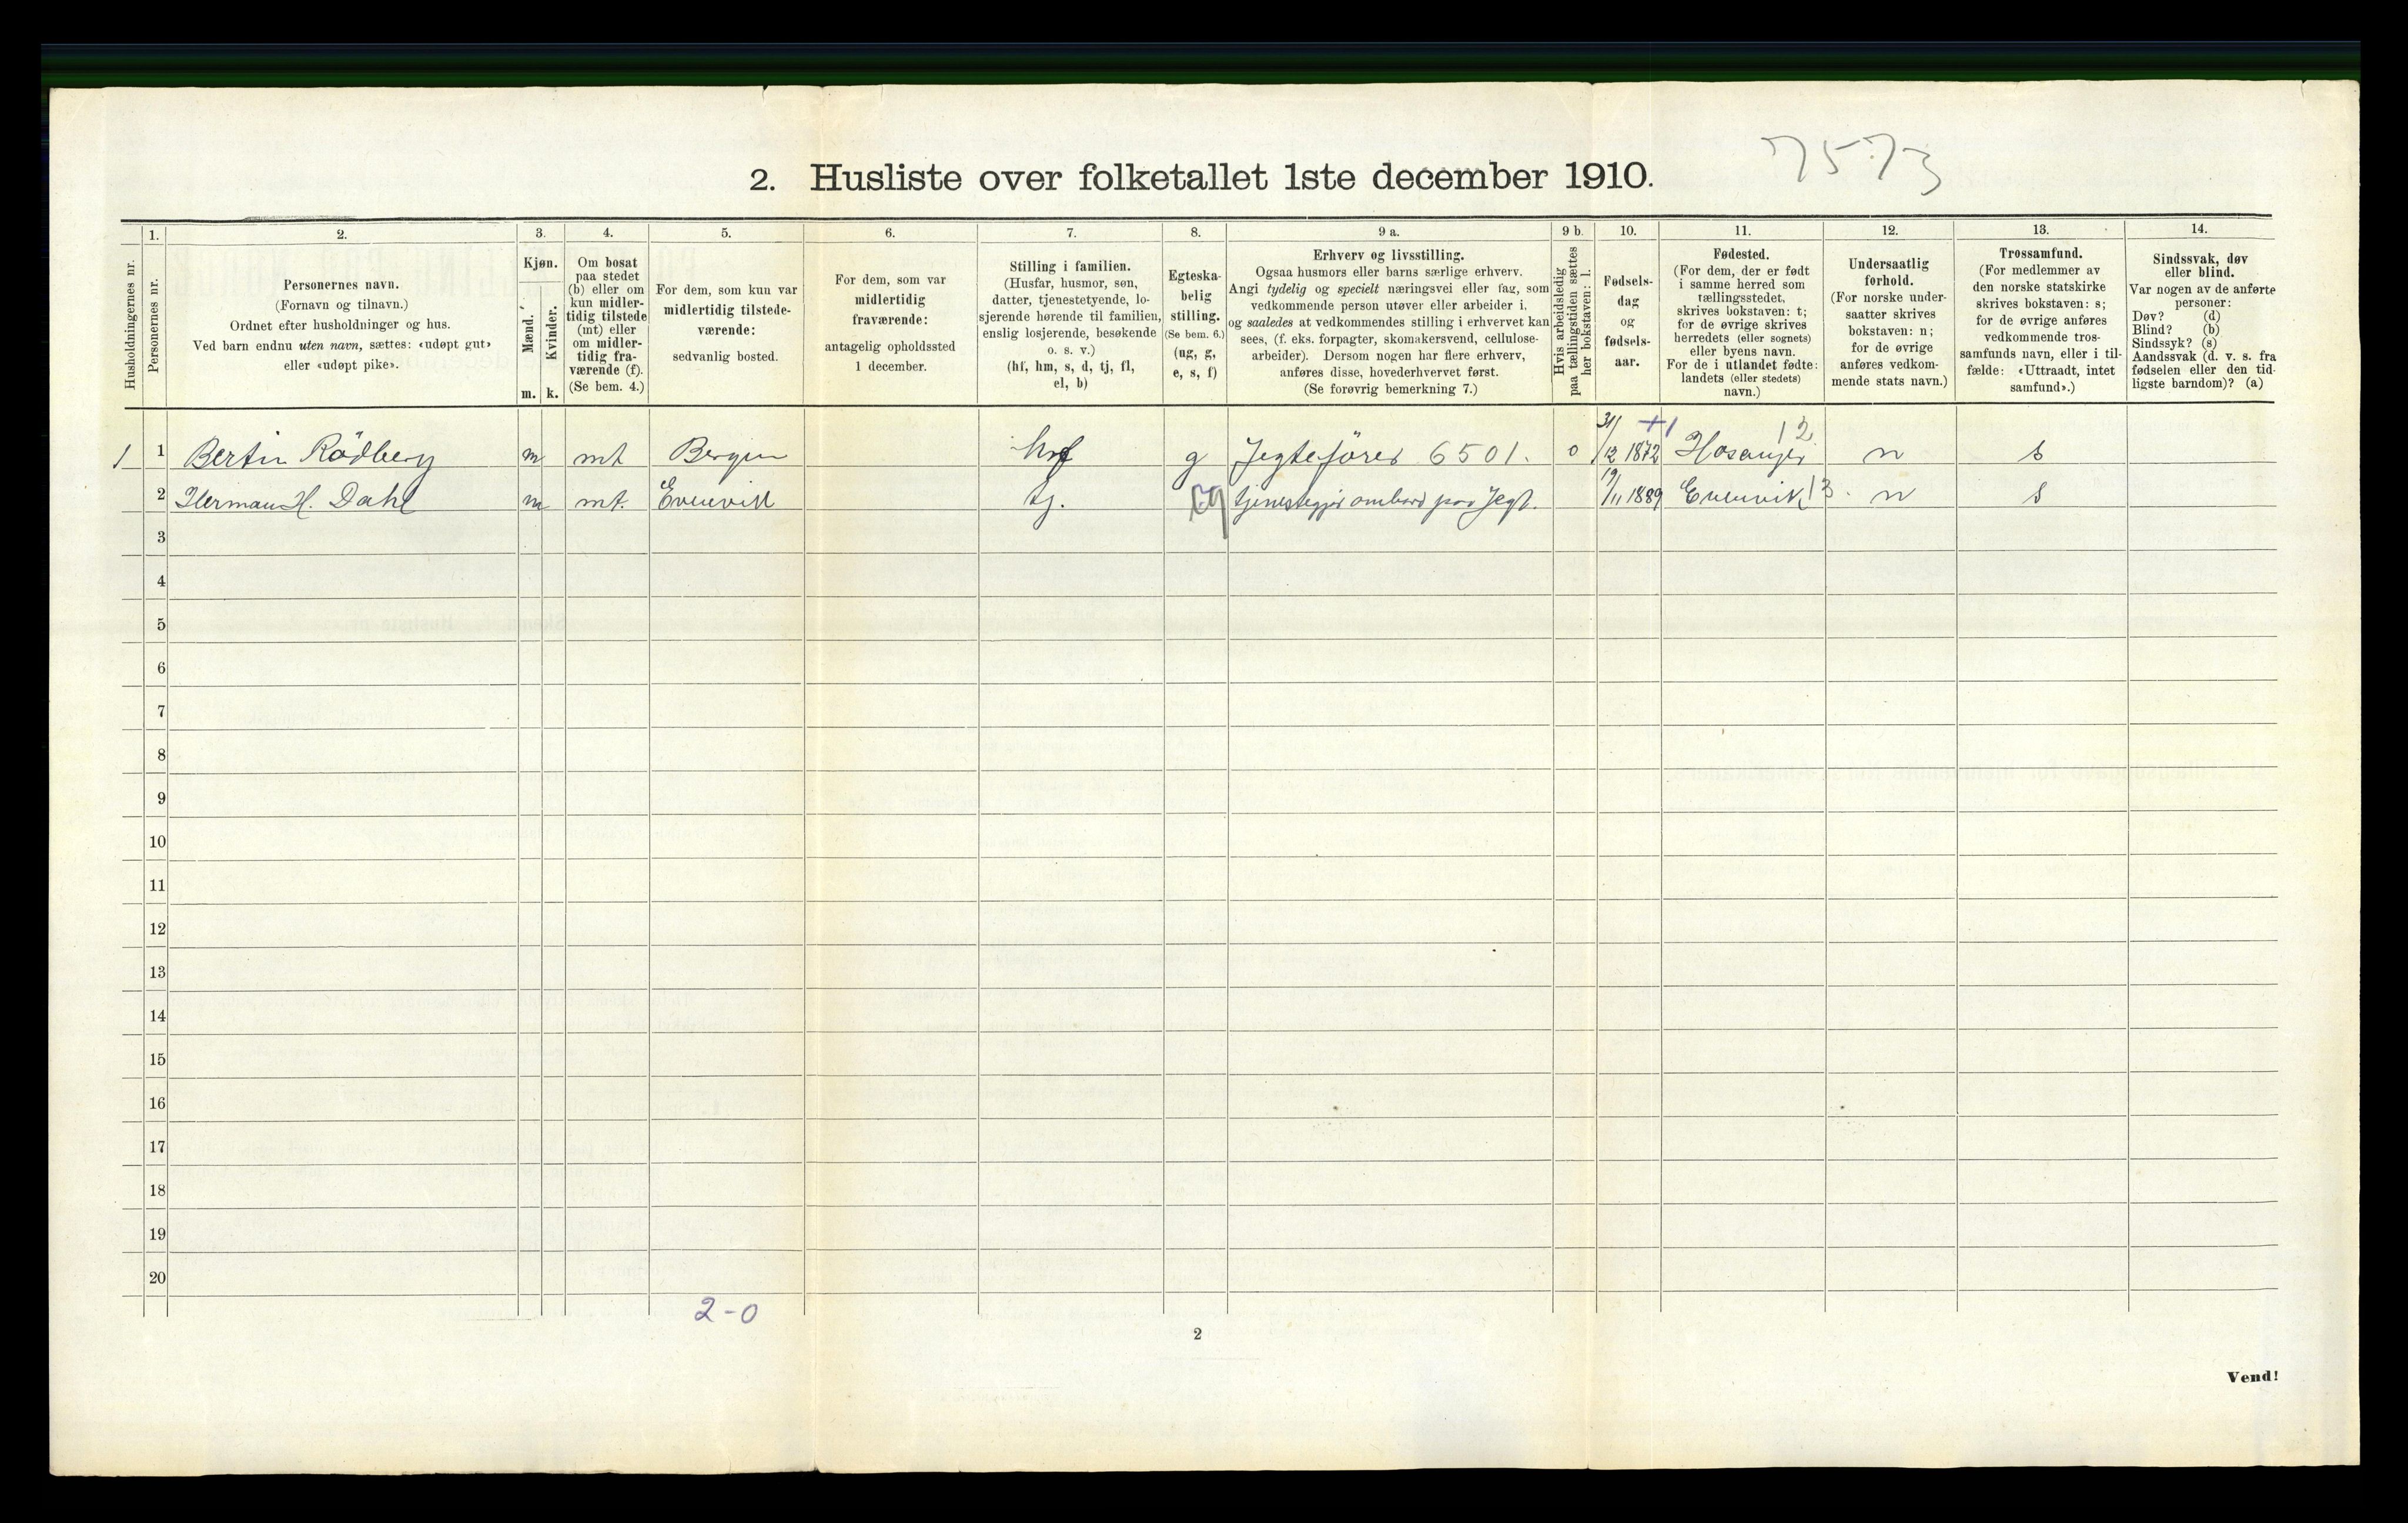 7573
2. Husliste over folketallet 1ste december 1910.
Husholdningernes nr.
1.
Personernes nr.
2.
Personernes navn.
(Fornavn og tilnavn.)
Ordnet efter husholdninger og hus.
Ved barn endnu uten navn, sættes: «udøpt gut»
eller «udøpt pike».
3.
Kjøn.
Mænd.
Kvinder.
m. k.
4.
Om bosat
paa stedet
(b) eller om
kun midler-
tidig tilstede
(mt) eller
om midler-
tidig fra-
værende (f).
(Se bem. 4.)
5.
For dem, som kun var
midlertidig tilstede-
værende:
sedvanlig bosted.
6.
For dem, som var
midlertidig
fraværende:
antagelig opholdssted
1 december.
7.
Stilling i familien.
(Husfar, husmor, søn,
datter, tjenestetyende, lo-
sjerende hørende til familien,
enslig losjerende, besøkende
o. s. v.)
(hf, hm, s, d, tj, fl,
el, b)
8.
Egteska-
belig
stilling.
(Se bem. 6.)
(ug, g,
e, s, f)
9 a.
Erhverv og livsstilling.
Ogsaa husmors eller barns særlige erhverv.
Angi tydelig og specielt næringsvei eller fag, som
vedkommende person utøver eller arbeider i,
og saaledes at vedkommendes stilling i erhvervet kan
sees, (f. eks. forpagter, skomakersvend, cellulose-
arbeider). Dersom nogen har flere erhverv,
anføres disse, hovederhvervet først.
(Se forøvrig bemerkning 7.)
9 b.
Hvis arbeidsledig
paa tællingstiden sættes
her bokstaven: l.
10.
Fødsels-
dag
og
fødsels-
aar.
11.
Fødested.
(For dem, der er født
i samme herred som
tællingsstedet,
skrives bokstaven: t;
for de øvrige skrives
herredets (eller sognets)
eller byens navn.
For de i utlandet fødte:
landets (eller stedets)
navn.)
12.
Undersaatlig
forhold.
(For norske under-
saatter skrives
bokstaven: n;
for de øvrige
anføres vedkom-
mende stats navn.)
13.
Trossamfund.
(For medlemmer av
den norske statskirke
skrives bokstaven: s;
for de øvrige anføres
vedkommende tros-
samfunds navn, eller i til-
fælde: «Uttraadt, intet
samfund».)
14.
Sindssvak, døv
eller blind.
Var nogen av de anførte
personer:
Døv? (d)
Blind? (b)
Sindssyk? (s)
Aandssvak (d. v. s. fra
fødselen eller den tid-
ligste barndom)? (a)
1 1 Bertin Rödberg m mt Bergen hf g Jegtefører 6501. 0 31/12 1872 Hosanger 12 n s
2 Herman H. Dahl m mt. Evenvik tj. ug tjenestegjør ombord paa Jegt. 19/11 1889 Evenvik 13. n s
3
4
5
6
7
8
9
10
11
12
13
14
15
16
17
18
19
20
2-0
2
Vend!